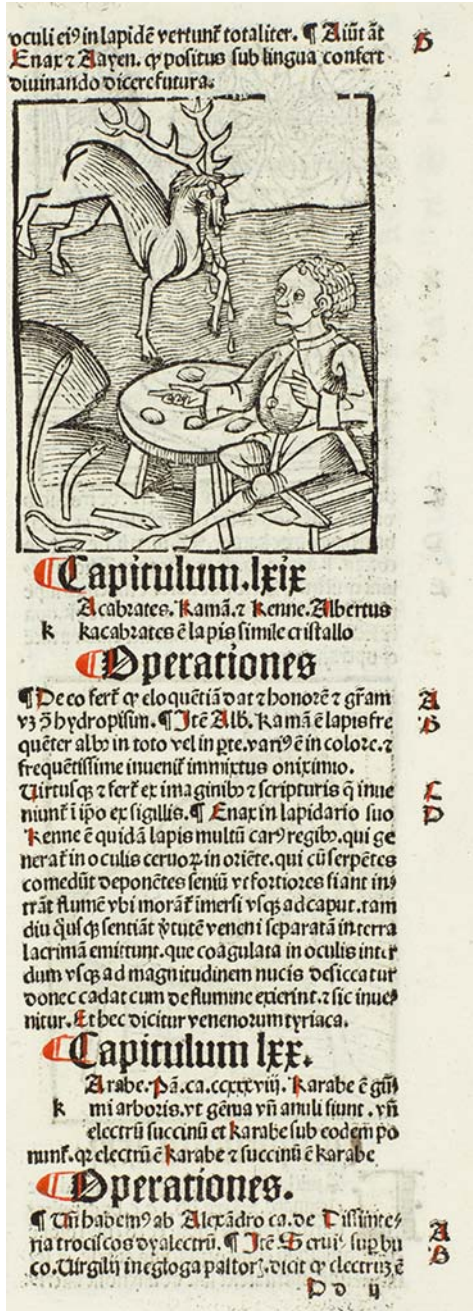 oculi ei⁹ in lapidē vertunť totaliter. ¶ Aiūt āt
Enax ⁊ Aayen. ꝙ positus sub lingua confert
diuinando dicere futura.
B
Capitulum.lxix
Acabrates. Kamā.⁊ Kenne. Albertus
k kacabrates ē lapis simile cristallo
Operationes
¶ De eo ferť ꝙ eloquētiā dat ⁊ honorē ⁊ gr̄am
A
vꝫ ↄ̄ hydropisim. ¶ Itē Alb. Kamā ē lapis fre
B
quēter albꝰ in toto vel in ꝑte. vari⁹ ē in colore.⁊
frequētissime inueniť immixtus oniximo.
Uirtusqꝫ ⁊ ferť ex imaginibꝰ ⁊ scripturis q̄ inue
C
niunť ī ipo ex sigillis. ¶ Enax in lapidario suo
D
Kenne ē quidā lapis multū car⁹ regibꝰ. qui ge
nerať in oculis ceruoꝝ in oriēte. qui cū serpētes
comedūt deponētes seniū vt fortiores fiant in⸗
trāt flumē vbi morāť imersi vsqꝫ ad caput. tam
diu q̄usqꝫ sentiāt v̓tutē veneni separatā in terra
lacrimā emittunt. que coagulata in oculis inter
dum vsqꝫ ad magnitudinem nucis desiccatur
donec cadat cum de flumine exierint.⁊ sic inue⸗
nitur. Et hec dicitur venenorum tyriaca.
Capitulum lxx.
Arabe. Pā. ca. ccxxxviij. Karabe ē gū⸗
k mi arboris. vt gēma vn̄ anuli fiunt. vn̄
electrū succinū et karabe sub eodem po
nunť. qꝛ electrū ē karabe ⁊ succinū ē karabe
Operationes.
¶ Un̄ habem⁹ ab Alexādro ca. de Dissinte⸗
A
ria trociscos dyalectrū. ¶ Itē Serui⁹ suꝑ bu
B
co. Uirgilij in egloga pastoꝝ. dicit ꝙ electruꝫ ē
D d ij